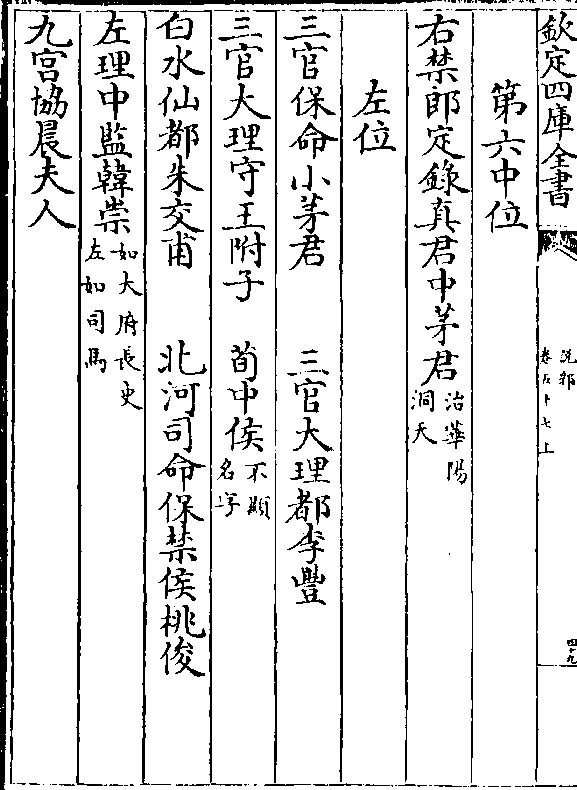 欽定四庫全書
說郛
卷五十七上
四十九
第六中位
右禁郎定錄真君中茅君治華陽洞天
左位
三官保命小茅君　三官大理都李豐
三官大理守王附子　荀中侯不顯名字
白水仙都朱交甫　北河司命保禁侯桃俊
左理中監韓崇如大府長史左如司馬
九宮協晨夫人